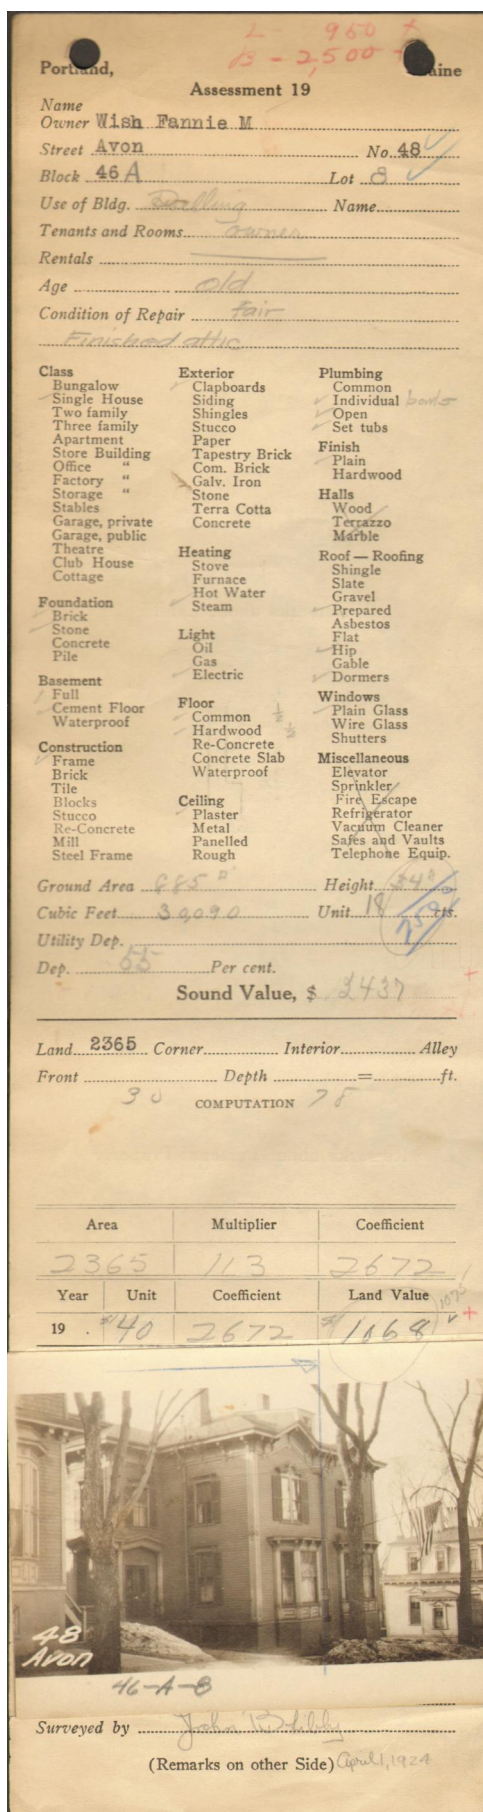 L - 950 +
B - 2,500 +
Portland, Maine
Assessment 19
Name
Owner Wish Fannie M
Street Avon No. 48
Block 46 A Lot 8
Use of Bldg. Dwelling Name
Tenants and Rooms owner
Rentals
Age old
Condition of Repair Fair
Finished attic
Class
Bungalow
Single House
Two family
Three family
Apartment
Store Building
Office "
Factory "
Storage "
Stables
Garage, private
Garage, public
Theatre
Club House
Cottage
Foundation
Brick
Stone
Concrete
Pile
Basement
Full
Cement Floor
Waterproof
Construction
Frame
Brick
Tile
Blocks
Stucco
Re-Concrete
Mill
Steel Frame
Exterior
Clapboards
Siding
Shingles
Stucco
Paper
Tapestry Brick
Com. Brick
Galv. Iron
Stone
Terra Cotta
Concrete
Heating
Stove
Furnace
Hot Water
Steam
Light
Oil
Gas
Electric
Floor
Common ½
Hardwood ½
Re-Concrete
Concrete Slab
Waterproof
Ceiling
Plaster
Metal
Panelled
Rough
Plumbing
Common
Individual bowls
Open
Set tubs
Finish
Plain
Hardwood
Halls
Wood
Terrazzo
Marble
Roof — Roofing
Shingle
Slate
Gravel
Prepared
Asbestos
Flat
Hip
Gable
Dormers
Windows
Plain Glass
Wire Glass
Shutters
Miscellaneous
Elevator
Sprinkler
Fire Escape
Refrigerator
Vacuum Cleaner
Safes and Vaults
Telephone Equip.
Ground Area 885 Height
Cubic Feet 30,090 Unit 18 cts.
Utility Dep.
Dep. 55 Per cent.
Sound Value, $ 2437
Land 2365 Corner Interior Alley
Front Depth = ft.
30 COMPUTATION 78
Area Multiplier Coefficient
2365 113 2672
Year Unit Coefficient Land Value 1075
19 . $40 2672 $1068 +
48
Avon
46-A-8
Surveyed by John R Libby
(Remarks on other Side) April 1, 1924